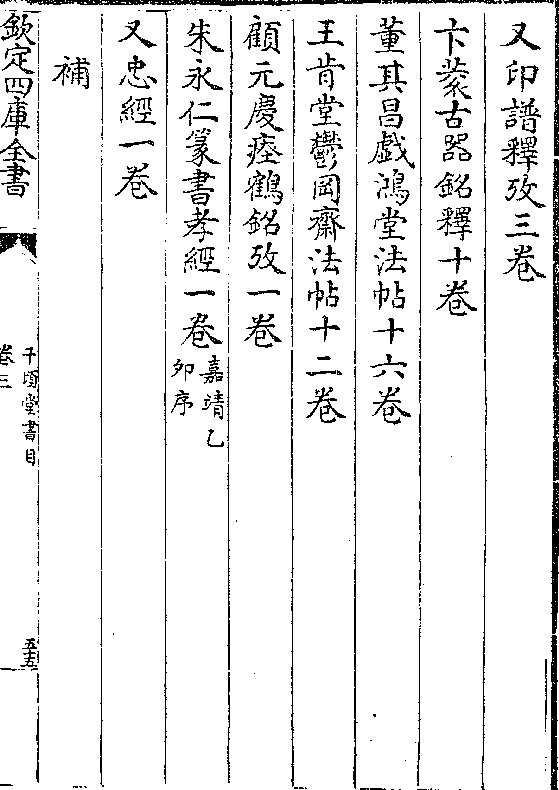 又印譜釋攷三卷
卞蓘古器銘釋十卷
董其昌戯鴻堂法帖十六卷
王肯堂鬱岡齋法帖十二卷
顧元慶瘞鶴銘攷一卷
朱永仁篆書孝經一卷嘉靖乙
卯序
又忠經一卷
補
欽定四庫全書
千頃堂書目
卷三
五五